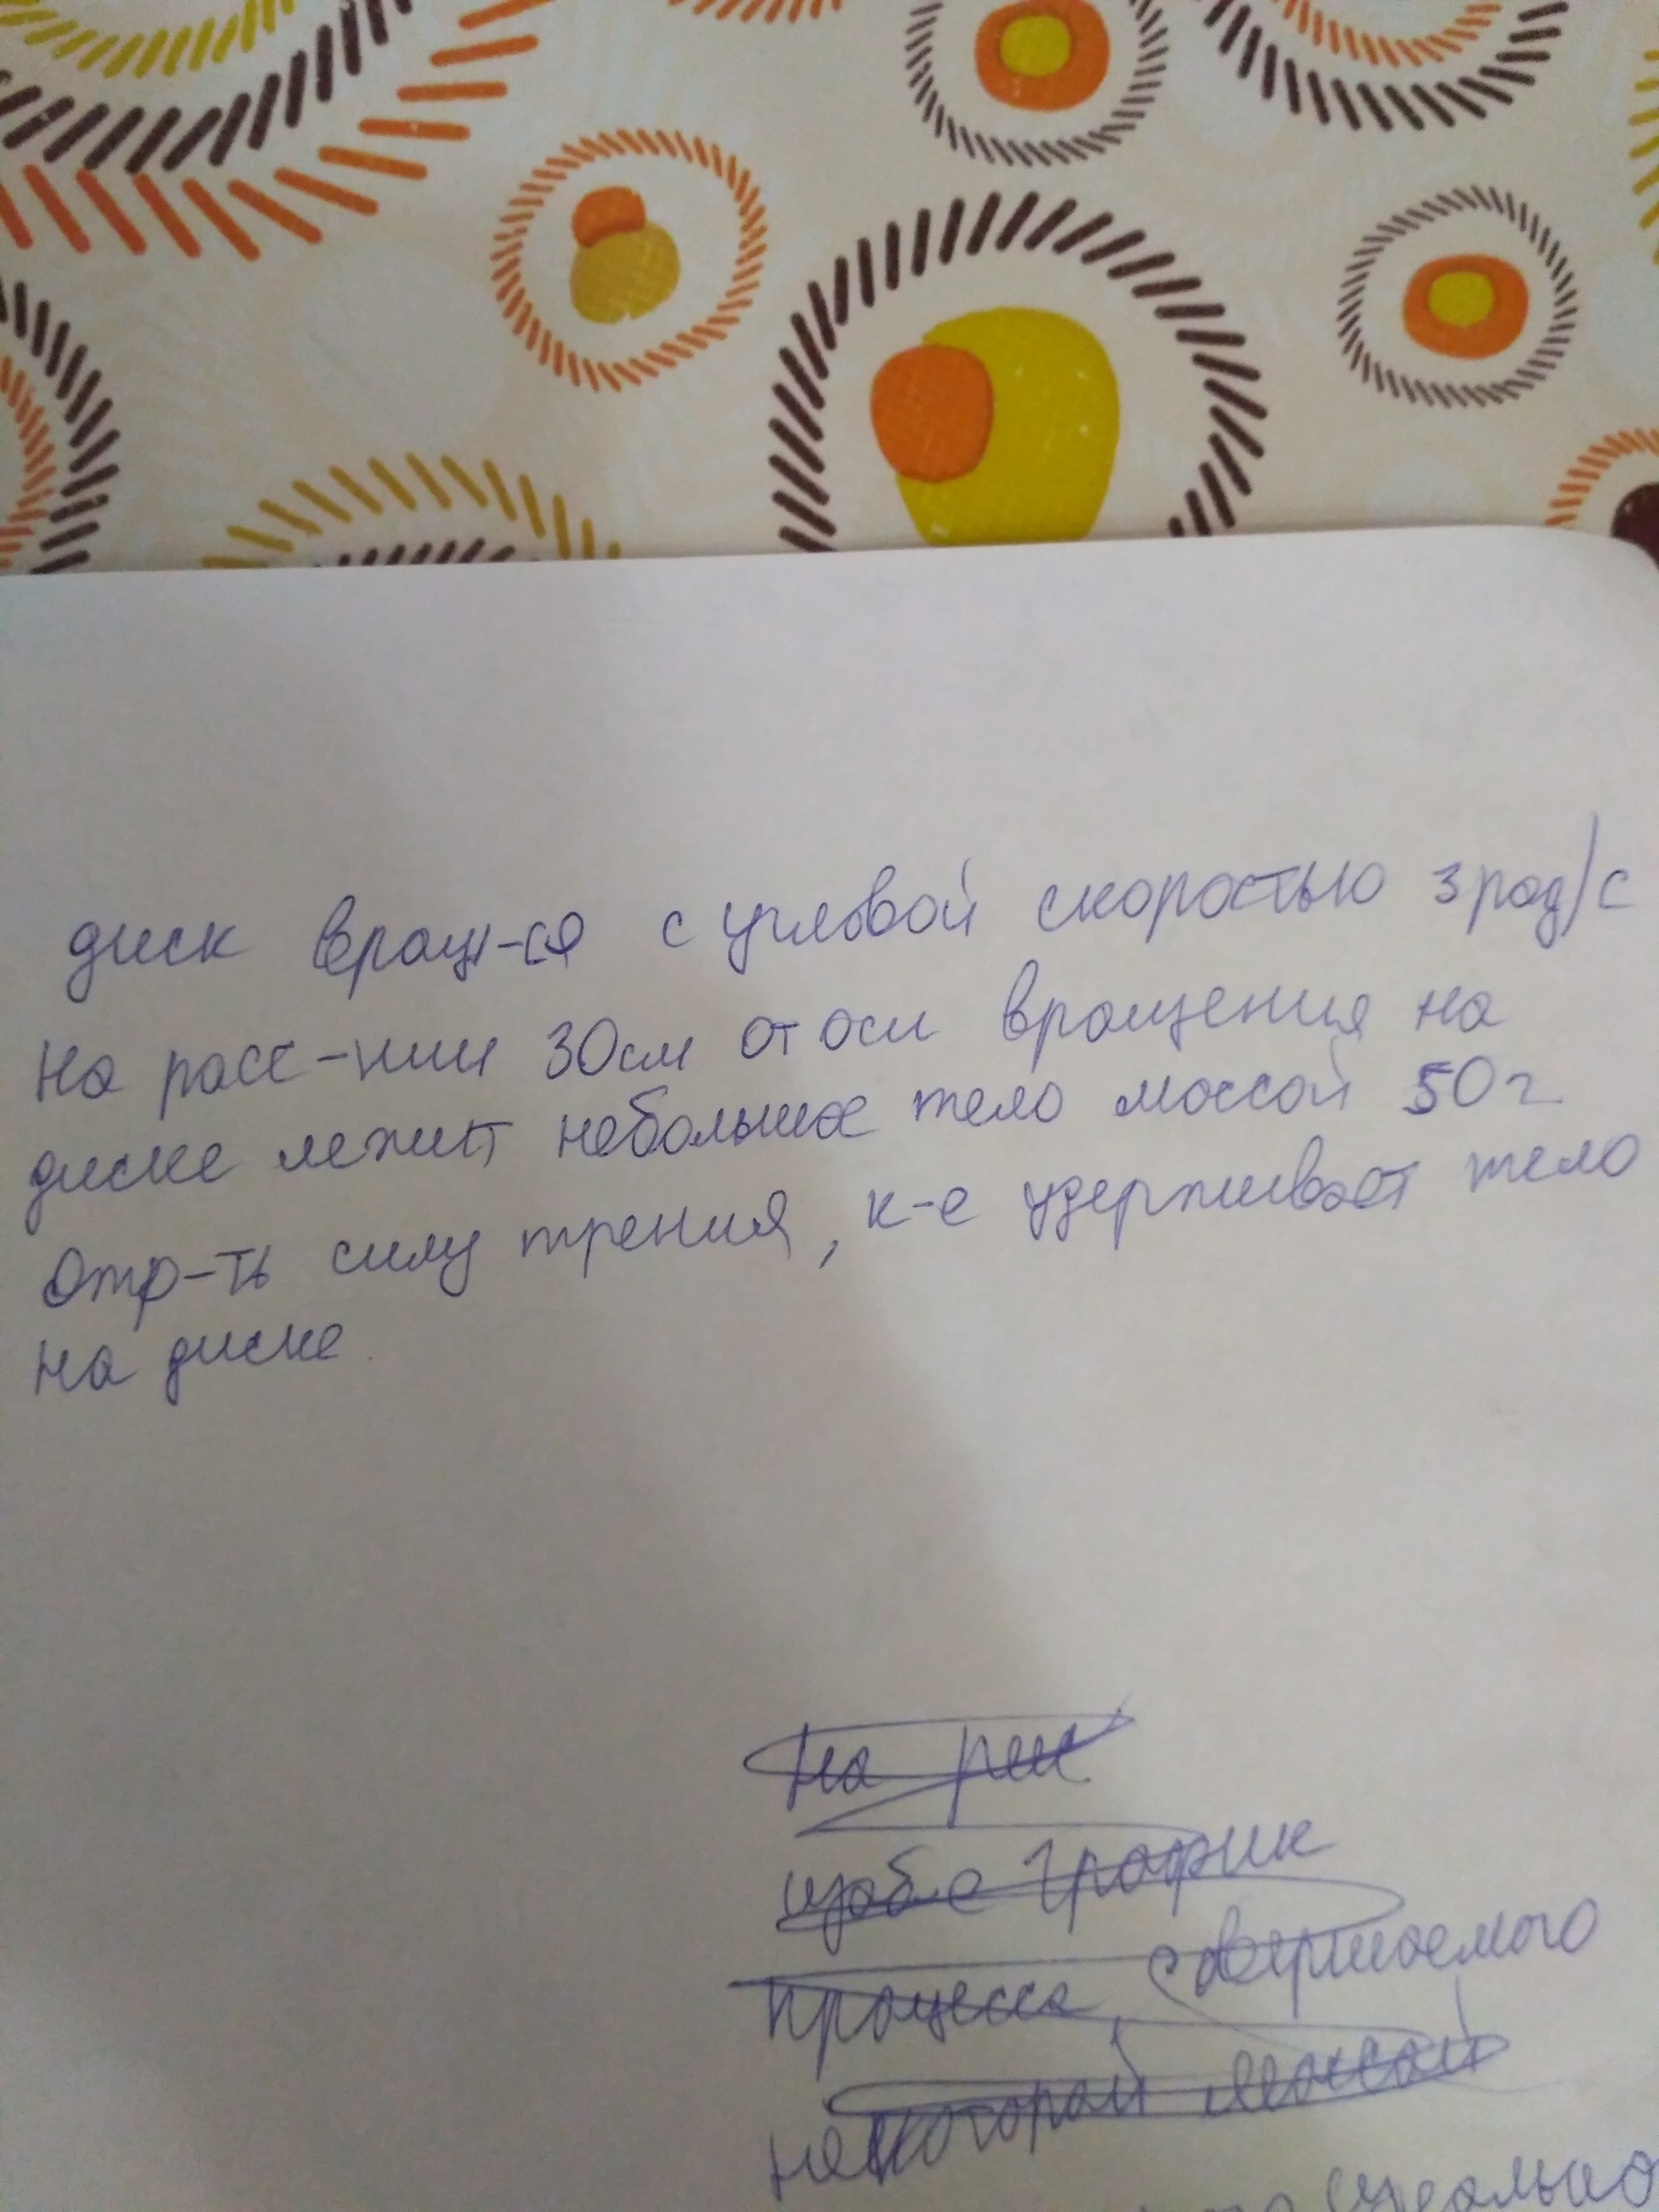 диск вращ-ся с угловой скоростью 3 рад/с
На расс-нии 30см от оси вращения на
диске лежит небольшое тело массой 50г
Отр-ть силу трения, к-е удерживает тело
на диске.
На рис.
изоб-о график
процесса, совершаемого
некоторой массой
идеально